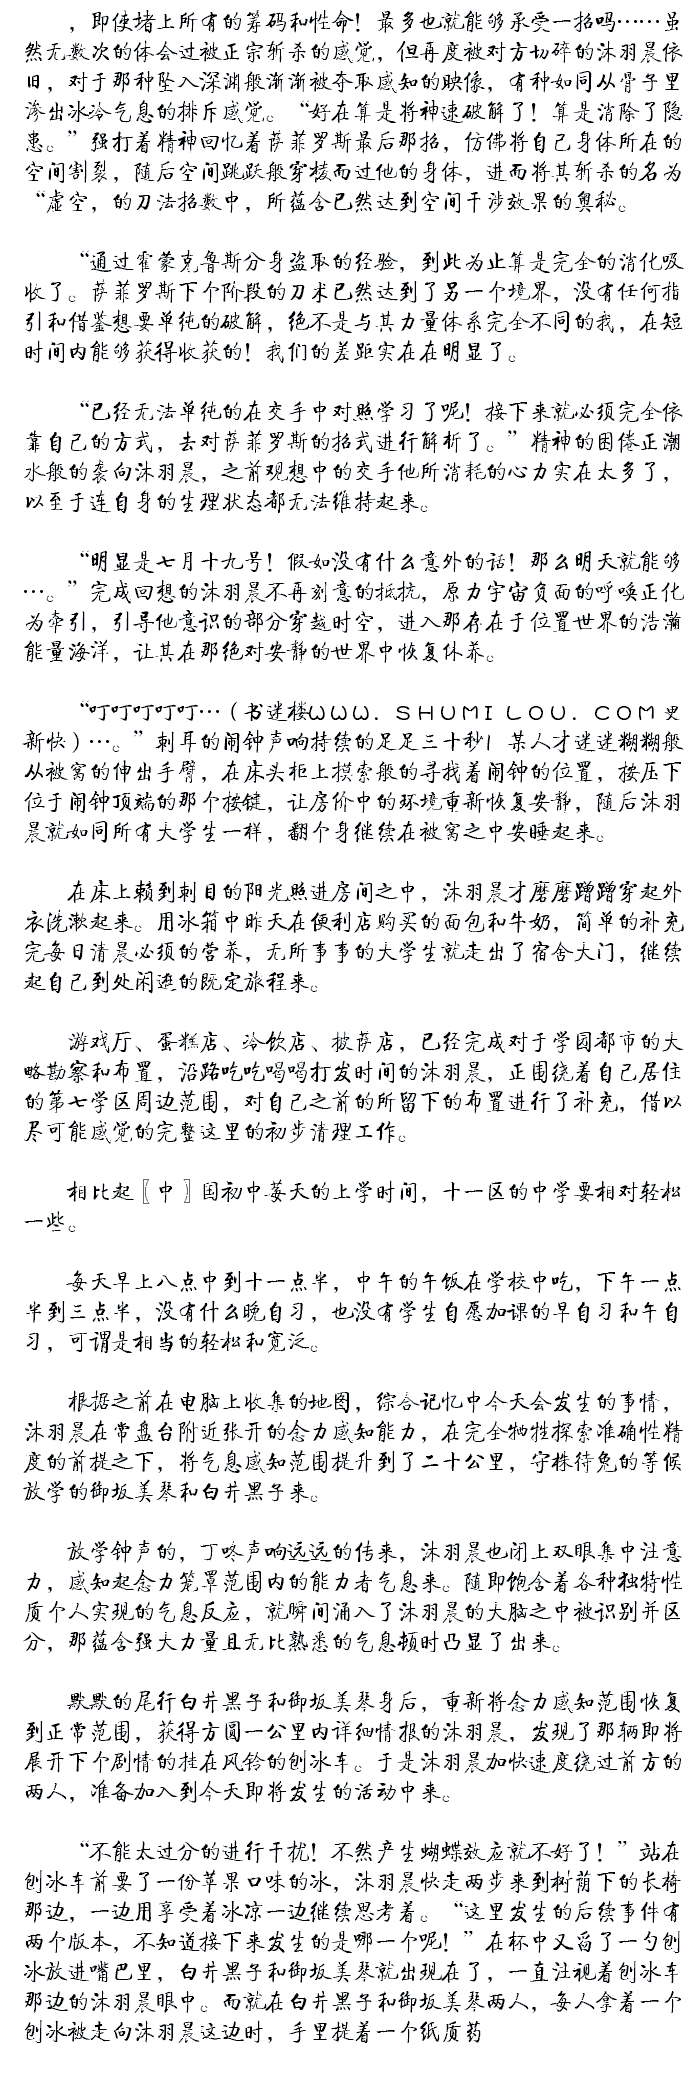 ，即使堵上所有的筹码和性命！最多也就能够承受一招吗……虽
然无数次的体会过被正宗斩杀的感觉，但再度被对方切碎的沐羽晨依
旧，对于那种坠入深渊般渐渐被夺取感知的映像，有种如同从骨子里
渗出冰冷气息的排斥感觉。“好在算是将神速破解了！算是消除了隐
患。”强打着精神回忆着萨菲罗斯最后那招，仿佛将自己身体所在的
空间割裂，随后空间跳跃般穿梭而过他的身体，进而将其斩杀的名为
“虚空，的刀法招数中，所蕴含已然达到空间干涉效果的奥秘。
“通过霍蒙克鲁斯分身盗取的经验，到此为止算是完全的消化吸
收了。萨菲罗斯下个阶段的刀术已然达到了另一个境界，没有任何指
引和借鉴想要单纯的破解，绝不是与其力量体系完全不同的我，在短
时间内能够获得收获的！我们的差距实在在明显了。
“已经无法单纯的在交手中对照学习了呢！接下来就必须完全依
靠自己的方式，去对萨菲罗斯的招式进行解析了。”精神的困倦正潮
水般的袭向沐羽晨，之前观想中的交手他所消耗的心力实在太多了，
以至于连自身的生理状态都无法维持起来。
“明显是七月十九号！假如没有什么意外的话！那么明天就能够
…。”完成回想的沐羽晨不再刻意的抵抗，原力宇宙负面的呼唤正化
为牵引，引导他意识的部分穿越时空，进入那存在于位置世界的浩瀚
能量海洋，让其在那绝对安静的世界中恢复休养。
“叮叮叮叮叮…（书迷楼ＷＷＷ．ＳＨＵＭＩＬＯＵ．ＣＯＭ更
新快）…。”刺耳的闹钟声响持续的足足三十秒|某人才迷迷糊糊般
从被窝的伸出手臂，在床头柜上摸索般的寻找着闹钟的位置，按压下
位于闹钟顶端的那个按键，让房价中的环境重新恢复安静，随后沐羽
晨就如同所有大学生一样，翻个身继续在被窝之中安睡起来。
在床上赖到刺目的阳光照进房间之中，沐羽晨才磨磨蹭蹭穿起外
衣洗漱起来。用冰箱中昨天在便利店购买的面包和牛奶，简单的补充
完每日清晨必须的营养，无所事事的大学生就走出了宿舍大门，继续
起自己到处闲逛的既定旅程来。
游戏厅、蛋糕店、冷饮店、披萨店，已经完成对于学园都市的大
略勘察和布置，沿路吃吃喝喝打发时间的沐羽晨，正围绕着自己居住
的第七学区周边范围，对自己之前的所留下的布置进行了补充，借以
尽可能感觉的完整这里的初步清理工作。
相比起〖中〗国初中莓天的上学时间，十一区的中学要相对轻松
一些。
每天早上八点中到十一点半，中午的午饭在学校中吃，下午一点
半到三点半，没有什么晚自习，也没有学生自愿加课的早自习和午自
习，可谓是相当的轻松和宽泛。
根据之前在电脑上收集的地图，综合记忆中今天会发生的事情，
沐羽晨在常盘台附近张开的念力感知能力，在完全牺牲探索准确性精
度的前提之下，将气息感知范围提升到了二十公里，守株待兔的等候
放学的御坂美琴和白井黑子来。
放学钟声的，丁咚声响远远的传来，沐羽晨也闭上双眼集中注意
力，感知起念力笼罩范围内的能力者气息来。随即饱含着各种独特性
质个人实现的气息反应，就瞬间涌入了沐羽晨的大脑之中被识别并区
分，那蕴含强大力量且无比熟悉的气息顿时凸显了出来。
默默的尾行白井黑子和御坂美琴身后，重新将念力感知范围恢复
到正常范围，获得方圆一公里内详细情报的沐羽晨，发现了那辆即将
展开下个剧情的挂在风铃的刨冰车。于是沐羽晨加快速度绕过前方的
两人，准备加入到今天即将发生的活动中来。
“不能太过分的进行干扰！不然产生蝴蝶效应就不好了！”站在
刨冰车前要了一份苹果口味的冰，沐羽晨快走两步来到树荫下的长椅
那边，一边用享受着冰凉一边继续思考着。“这里发生的后续事件有
两个版本，不知道接下来发生的是哪一个呢！”在杯中又舀了一勺刨
冰放进嘴巴里，白井黑子和御坂美琴就出现在了，一直注视着刨冰车
那边的沐羽晨眼中。而就在白井黑子和御坂美琴两人，每人拿着一个
刨冰被走向沐羽晨这边时，手里提着一个纸质药